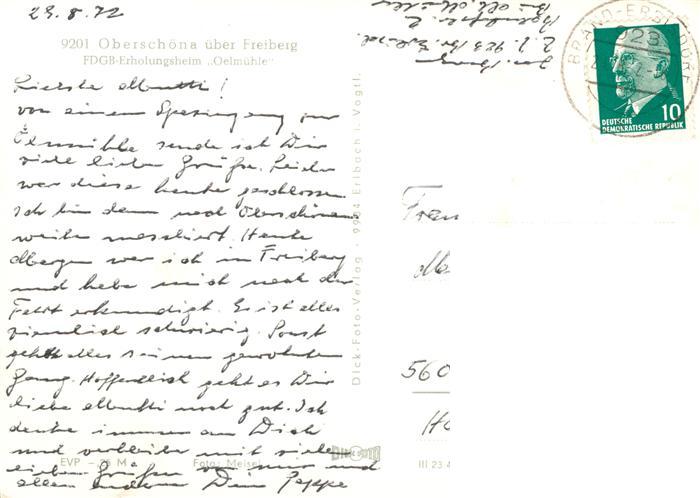 23.8.72
9201 Oberschöna über Freiberg
FDGB-Erholungsheim „Oelmühle"
Liebste Mutti!
von einem Spaziergang zur
Ölmühle sende ich Dir
viele lieben Grüße. Leider
war diese heute geschlossen.
Ich bin dann nach Oberschöna
weiter marschiert. Heute
Morgen war ich in Freiberg
und habe mich nach der
Fahrt erkundigt. Es ist alles
ziemlich schwierig. Sonst
geht alles seinen gewohnten
Gang. Hoffentlich geht es Dir
liebe Mutti noch gut. Ich
denke immer an Dich
und verbleibe mit vielen
lieben Grüßen von mir und
allen andern Dein Peppe
EVP – M
Foto: Meise
Dick-Foto-Verlag · 9934 Erlbach i. Vogtl.
III 23 4
BRAND-ERBISDORF
10
DEUTSCHE
DEMOKRATISCHE REPUBLIK
Frau
560